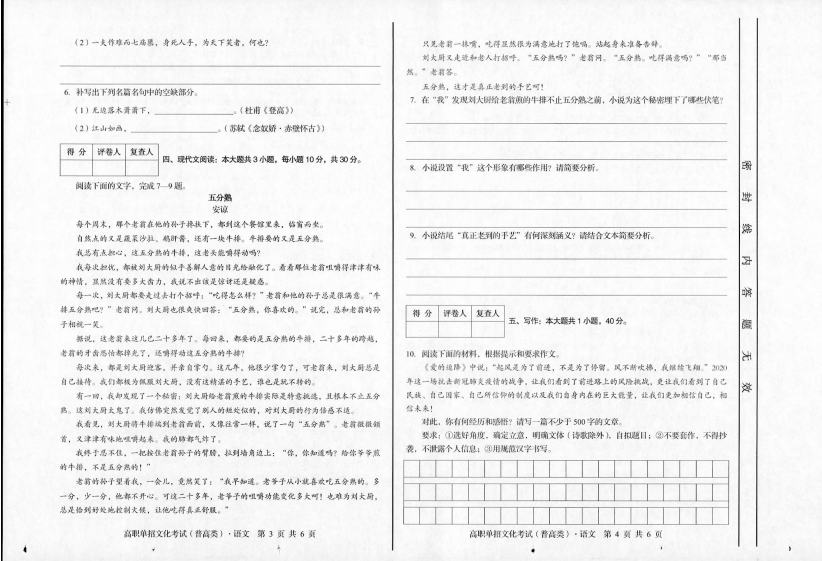 (2)一夫作难而七庙隳，身死人手，为天下笑者，何也？
6. 补写出下列名篇名句中的空缺部分。
(1)无边落木萧萧下，____________。(杜甫《登高》)
(2)江山如画，____________。(苏轼《念奴娇·赤壁怀古》)
得 分 评卷人 复查人
四、现代文阅读：本大题共3小题，每小题10分，共30分。
阅读下面的文字，完成7—9题。
五分熟
安谅
每个周末，那个老翁在他的孙子搀扶下，都到这个餐馆里来，临窗而坐。
自然点的又是蔬菜沙拉、鹅肝酱，还有一块牛排。牛排要的又是五分熟。
我总有点担心，这五分熟的牛排，这老头能嚼得动吗？
我每次担忧，都被刘大厨的似乎善解人意的目光给融化了。看着那位老翁咀嚼得津津有味
的神情，显然没有费多大齿力，我说不出该是惊讶还是疑惑。
每一次，刘大厨都要走过去打个招呼：“吃得怎么样？”老翁和他的孙子总是很满意。“牛
排五分熟吧？”老翁问。刘大厨也很爽快回答：“五分熟，你喜欢的。”说完，总和老翁的孙
子相视一笑。
据说，这老翁来这儿已二十多年了。每回来，都要的是五分熟的牛排，二十多年的跨越，
老翁的牙齿恐怕都掉光了，还嚼得动这五分熟的牛排？
每次来，都是刘大厨迎客，并亲自掌勺。这几年，他很少掌勺了，可老翁来，刘大厨总是
自己接待。我们都极为佩服刘大厨，没有这精湛的手艺，谁也是玩不转的。
有一回，我却发现了一个秘密：刘大厨给老翁煎的牛排实际是特意挑选，且根本不止五分
熟。这刘大厨太鬼了。我仿佛突然发觉了别人的短处似的，对刘大厨的行为倍感不适。
我看见，刘大厨将牛排端到老翁面前，又像往常一样，说了一句“五分熟”。老翁微微颔
首，又津津有味地咀嚼起来。我的肺都气炸了。
我终于忍不住，一把按住老翁孙子的臂膀，拉到墙角边上：“你，你知道吗？给你爷爷煎
的牛排，不是五分熟的！”
老翁的孙子望着我，一会儿，竟然笑了：“我早知道。老爷子从小就喜欢吃五分熟的。多
一分，少一分，他都不开心。可这二十多年，老爷子的咀嚼功能变化多大呵！也难为刘大厨，
总是恰到好处地控制火候，让他吃得真正舒服。”
高职单招文化考试(普高类)·语文 第3页 共6页
只见老翁一抹嘴，吃得显然很为满意地打了饱嗝。站起身来准备告辞。
刘大厨又走近和老人打招呼。“五分熟吗？”老翁问。“五分熟。吃得满意吗？”“那当
然。”老翁答。
五分熟，这才是真正老到的手艺呵！
7. 在“我”发现刘大厨给老翁煎的牛排不止五分熟之前，小说为这个秘密埋下了哪些伏笔？
8. 小说设置“我”这个形象有哪些作用？请简要分析。
9. 小说结尾“真正老到的手艺”有何深刻涵义？请结合文本简要分析。
得 分 评卷人 复查人
五、写作：本大题共1小题，40分。
10. 阅读下面的材料，根据提示和要求作文。
《爱的追降》中说：“起风是为了前进，不是为了停留。风不断吹拂，我继续飞翔。”2020
年这一场抗击新冠肺炎疫情的战争，让我们看到了前进路上的风险挑战，更让我们看到了自己
民族、自己国家、自己所信仰的制度以及我们自身内在的巨大能量，让我们更加相信自己，相
信未来！
对此，你有何经历和感悟？请写一篇不少于500字的文章。
要求：①选好角度，确定立意，明确文体(诗歌除外)，自拟题目；②不要套作，不得抄
袭，不泄露个人信息；③用规范汉字书写。
高职单招文化考试(普高类)·语文 第4页 共6页
密封线内答题无效